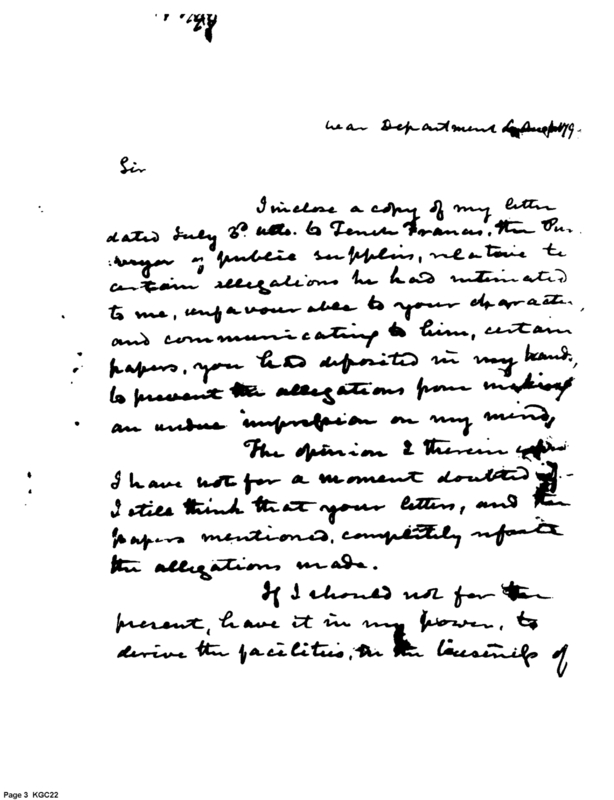 War Department August 179
Sir
I inclose a copy of my letter
dated July 3d. ulto. to Tench Francis, the Pur-
veyor of public supplies, relative to
certain allegations he had intimated
to me, unfavourable to your character,
and communicating to him, certain
papers, you had deposited in my hands,
to prevent the allegations from making
an undue impression on my mind,
The opinion I therein
I have not for a moment doubted
I still think that your letters, and the
papers mentioned, completely refute
the allegations made.
If I should not for the
present, have it in my power, to
derive the facilities, in the business of
Page 3 KGC22